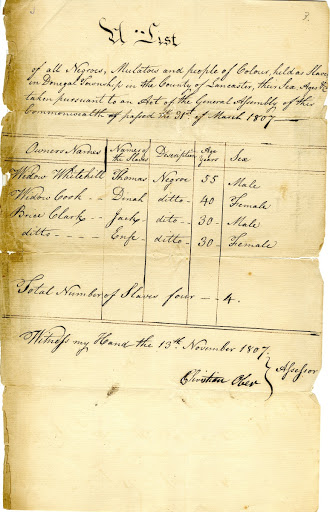 3.
A List
of all Negroes, Mulatoes and people of Colour, held as Slaves
in Donegal Township in the County of Lancaster, their Sex, Ages &c
taken pursuant to an Act of the General Assembly of this
Commonwealth passed the 31st of March 1807
Owners Names Names of the Slaves Description Age Years Sex
Widow Whitehill Thomas Negroe 55 Male
Widow Cook - - Dinah ditto - 40 Female
Brice Clark - - Jack - ditto - 30 - Male
ditto - - ditto - 30 - Female
Total Number of Slaves four - - 4.
Witness my Hand the 13th November 1807.
Christian Ober Assessor